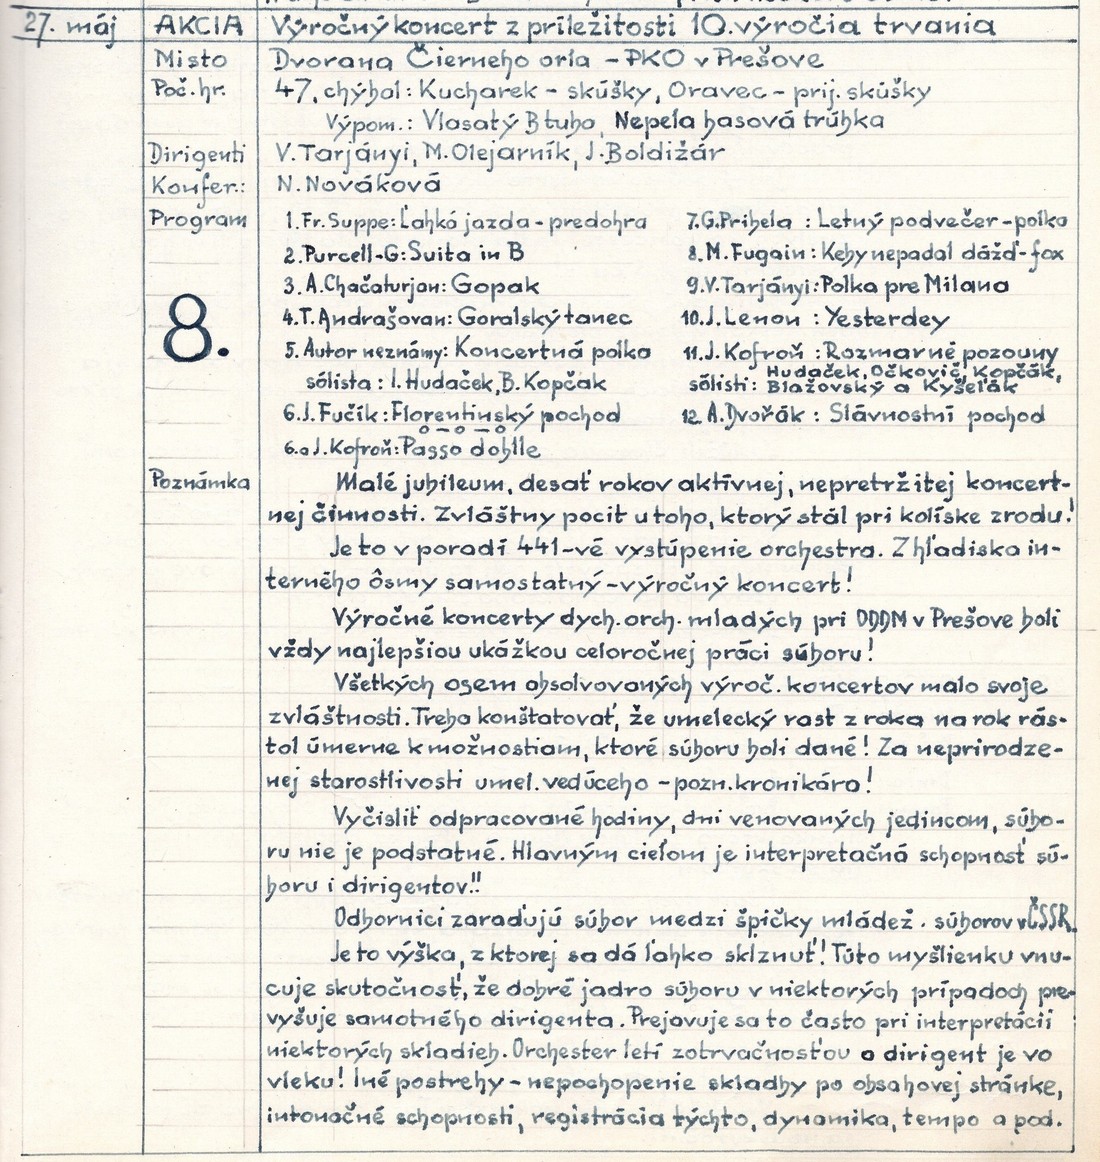 27. máj AKCIA Výročný koncert z príležitosti 10. výročia trvania
Misto Dvorana Čierneho orla - PKO v Prešove
Poč. hr. 47, chýbal: Kucharek - skúšky, Oravec - prij. skúšky
Výpom.: Vlasatý B tuba, Nepela basová trúbka
Dirigenti V. Tarjányi, M. Olejarník, J. Boldižár
Konfer.: N. Nováková
Program 1. Fr. Suppe: Ľahká jazda - predohra 7. G. Pribela : Letný podvečer - polka
2. Purcell-G: Suita in B 8. M. Fugain : Keby nepadal dážď - fox
3. A. Chačaturjan: Gopak 9. V. Tarjányi: Polka pre Milana
8. 4. T. Andrašovan: Goralský tanec 10. J. Lenon : Yesterdey
5. Autor neznámy: Koncertná polka 11. J. Kofroň : Rozmarné pozouny
sólista : I. Hudaček, B. Kopčak sólisti: Hudaček, Očkovič, Kopčák,
Blažovský a Kyšeľák
6. J. Fučik: Florentinský pochod 12. A. Dvořák : Slávnostní pochod
o-o-o
6.a J. Kofroň: Passo doblle
Poznámka Malé jubileum, desať rokov aktívnej, nepretržitej koncert-
nej činnosti. Zvláštny pocit u toho, ktorý stál pri kolíske zrodu!
Je to v poradí 441-vé vystúpenie orchestra. Z hľadiska in-
terného ôsmy samostatný-výročný koncert!
Výročné koncerty dych. orch. mladých pri ODDM v Prešove boli
vždy najlepšiou ukážkou celoročnej práci súboru!
Všetkých osem absolvovaných výroč. koncertov malo svoje
zvláštnosti. Treba konštatovať, že umelecký rast z roka na rok rás-
tol úmerne k možnostiam, ktoré súboru boli dané! Za neprirodze-
nej starostlivosti umel. vedúceho - pozn. kronikára!
Vyčísliť odpracované hodiny, dni venovaných jedincom, súbo-
ru nie je podstatné. Hlavným cieľom je interpretačná schopnosť sú-
boru i dirigentov!!
Odbornici zaraďujú súbor medzi špičky mládež. súborov v ČSSR.
Je to výška, z ktorej sa dá ľahko skĺznuť! Túto myšlienku vnu-
cuje skutočnosť, že dobré jadro súboru v niektorých prípadoch pre-
vyšuje samotného dirigenta. Prejavuje sa to často pri interpretácii
niektorých skladieb. Orchester letí zotrvačnosťou a dirigent je vo
vleku! Iné postrehy - nepochopenie skladby po obsahovej stránke,
intonačné schopnosti, registrácia týchto, dynamika, tempo a pod.